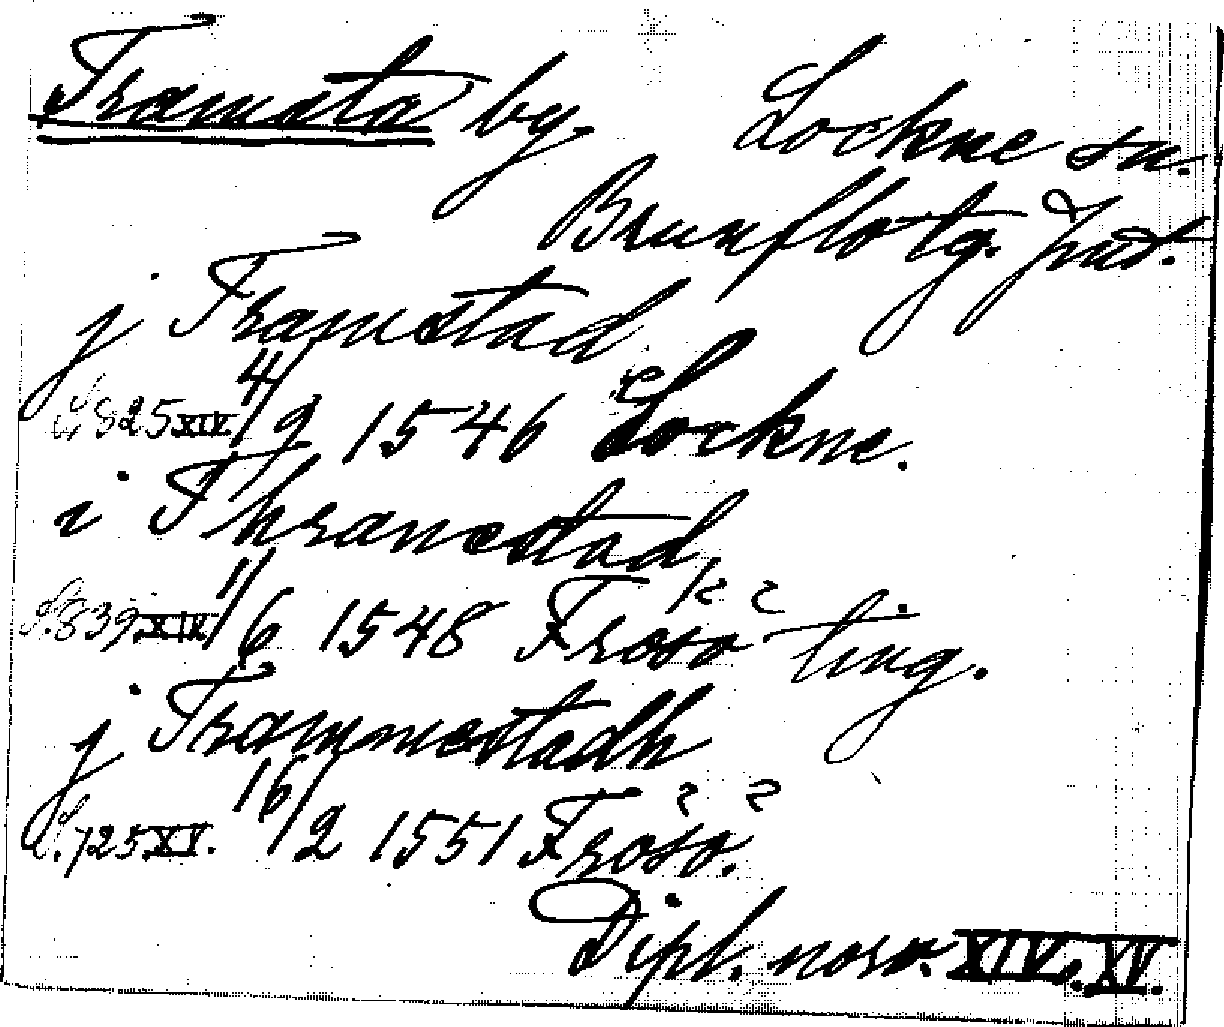 Tramsta by Lockne sn.
Brunflo tg. Jmt.
j Tramstad
S. 825 XIV. 4/9 1546 Lockne.
i Thramstad
S. 839 XIV 11/6 1548 Frösö ting.
j Trammestadh
S. 725 XV. 16/2 1551 Frösö.
Dipl. norv. XIV. XV.